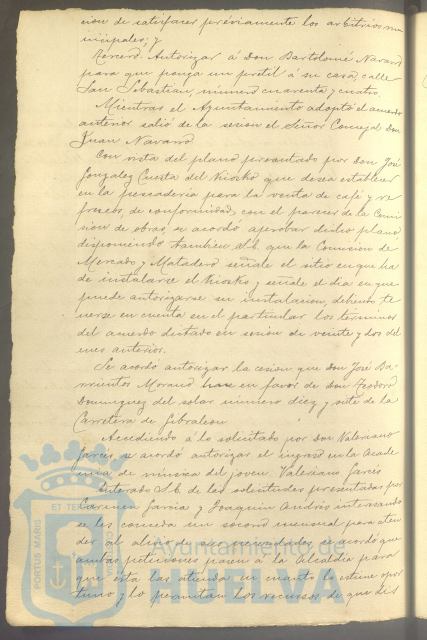 cion de satisfacer préviamente los arbitrios mu
nicipales; y
Tercero. Autorizar á Don Bartolomé Navarro
para que ponga un pretil á su casa, calle
San Sebastian, número cuarenta y cuatro.
Mientras el Ayuntamiento adoptó el acuerdo
anterior salió de la sesion el Señor Concejal Don
Juan Navarro
Con vista del plano presentado por Don José
Gonzalez Cuesta del Kiosko que desea establecer
en la pescadería para la venta de café y re
frescos, de conformidad, con el parecer de la Comi
sion de obras, se acordó aprobar dicho plano,
disponiendo tambien S.E. que la Comision de
Mercado y Matadero señale el sitio en que ha
de instalarse el Kiosko y señale el dia en que
puede autorizarse su instalacion, debiendo te
nerse en cuenta en el particular los términos
del acuerdo dictado en sesion de veinte y dos del
mes anterior.
Se acordó autorizar la cesion que don José Ba
rrientos Morano hace en favor de don Teodoro
Dominguez del solar número diez y siete de la
Carretera de Gibraleon
Accediendo á lo solicitado por Don Valeriano
Garcés, se acordó autorizar el ingreso en la Acade
mia de música del joven Valeriano Garcés
Enterado S.E. de las solicitudes presentadas por
Carmen Garcia y Joaquin Andrés interesando
se les conceda un socorro mensual para aten
der al alivio de sus necesidades se acordó que
ambas peticiones pasen á la Alcaldia para
que esta las atienda en cuanto lo estime opor
tuno y lo permitan los recursos de que dis
PORTUS MARIS
ET TER
Ayuntamiento de
HUELVA